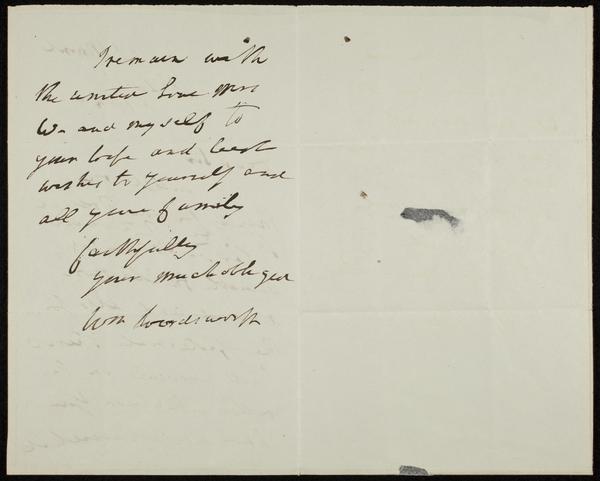 I remain with
the united love Mrs
W- and myself to
your wife and best
wishes to yourself and
all your family
faithfully
your much obliged
Wm Wordsworth